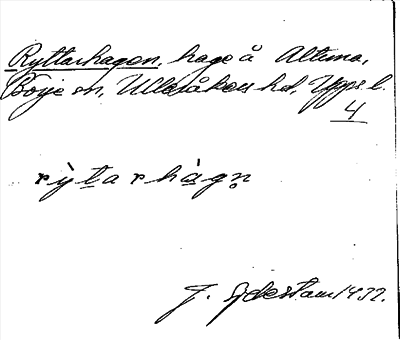 Ryttarhagen, hage å Altuna,
Börje sn, Ulleråkers hd, Upps l.
4
rỳt̲arhà̲gn̥
J. Sjdestam 1932.